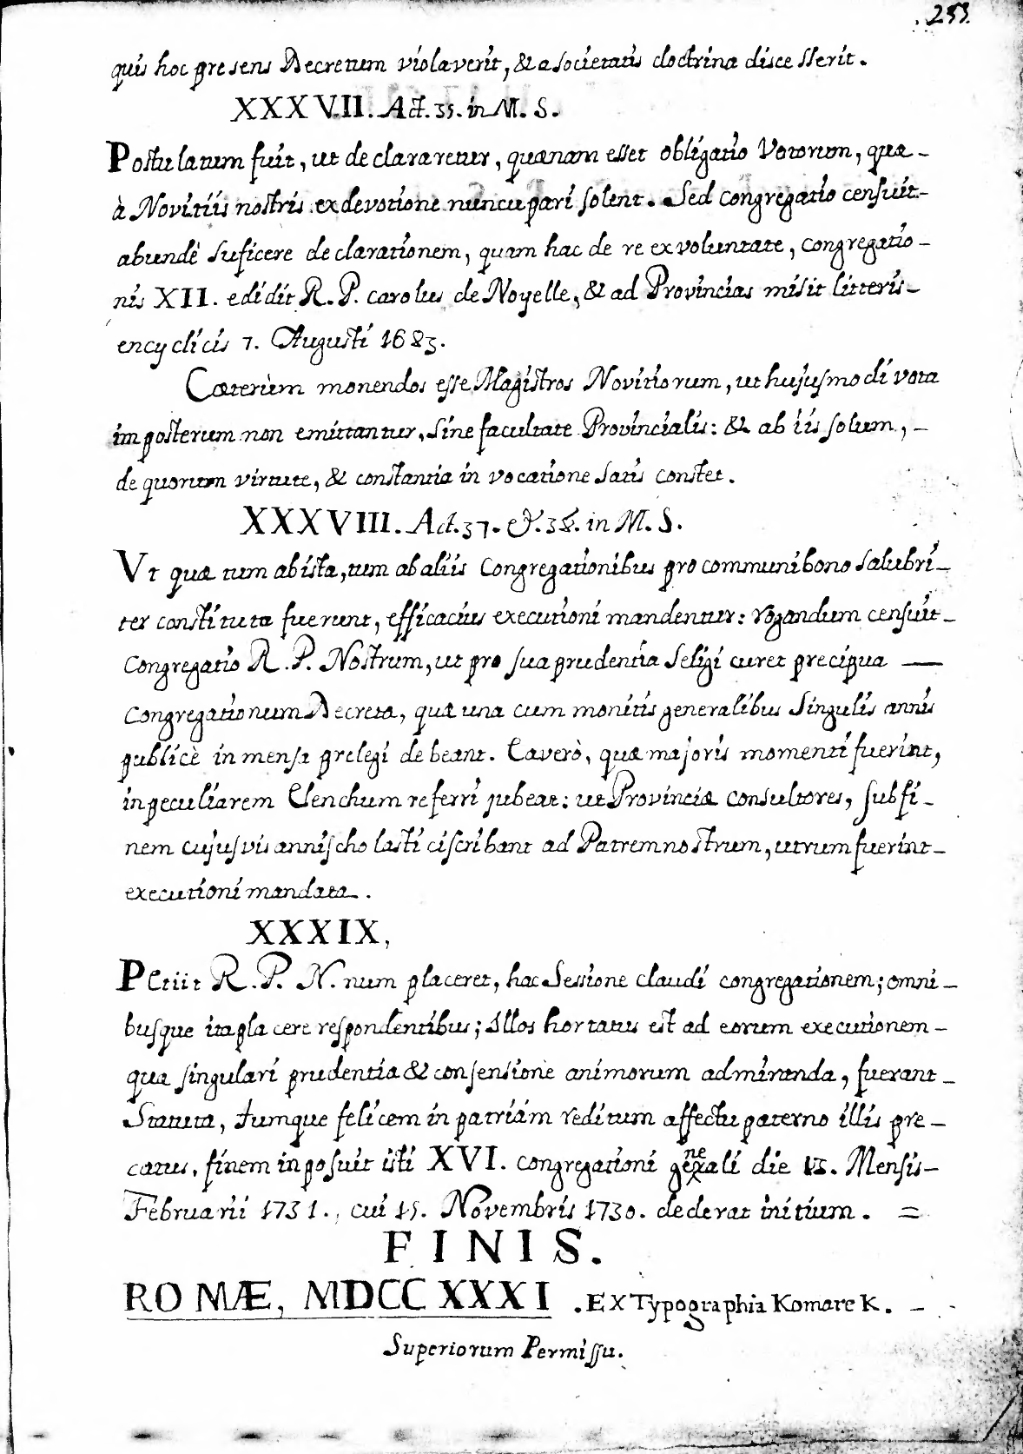 253.
quis hoc presens Decretum violaverit, & a societatis doctrina discesserit.
XXXVII. Act. 35. in M. S.
Postulatum fuit, ut declararetur, quænam esset obligatio Votorum, quæ-
à Novitiis nostris ex devotione nuncupari solent. Sed congregatio censuit-
abundè suficere declarationem, quam hac de re ex voluntate, congregatio-
nis XII. edidit R. P. carolus de Noyelle, & ad Provincias misit litteris-
encyclicis 7. Augusti 1683.
Cæterùm monendos esse Magistros Novitiorum, ut hujusmodi vota
imposterum non emittantur, sine facultate Provincialis: & ab iis solum, -
de quorum virtute, & constantia in vocatione satis constet.
XXXVIII. Act. 37. &. 38. in M. S.
Vt quæ tum ab ista, tum ab aliis Congregationibus pro communi bono salubri-
ter constituta fuerunt, efficacius executioni mandentur: rogandum censuit-
Congregatio R. P. Nostrum, ut pro sua prudentia seligi curet precipua —
Congregationum Decreta, quæ una cum monitis generalibus singulis annis
publicè in mensa prelegi debeant. Caverò, quæ majoris momenti fuerint,
in peculiarem Elenchum referri jubeat: ut Provinciæ Consultores, sub fi-
nem cujusvis anni scholasti ci scribant ad Patrem nostrum, utrum fuerint-
executioni mandata.
XXXIX,
PEtiit R. P. N. num placeret, hac Sessione claudi congregationem; omni-
busque ita placere respondentibus; illos hortatus est ad eorum executionem-
qua singulari prudentia & consensione animorum admiranda, fuerant-
Statuta, tumque felicem in patriám reditum affectu paterno illis pre-
catus, finem inposuit isti XVI. congregationi generali die 13. Mensis-
Februarii 1731., cui 15. Novembris 1730. dederat initium. =
FINIS.
ROMÆ, MDCCXXXI. EX Typographia Komarek. -
Superiorum Permissu.